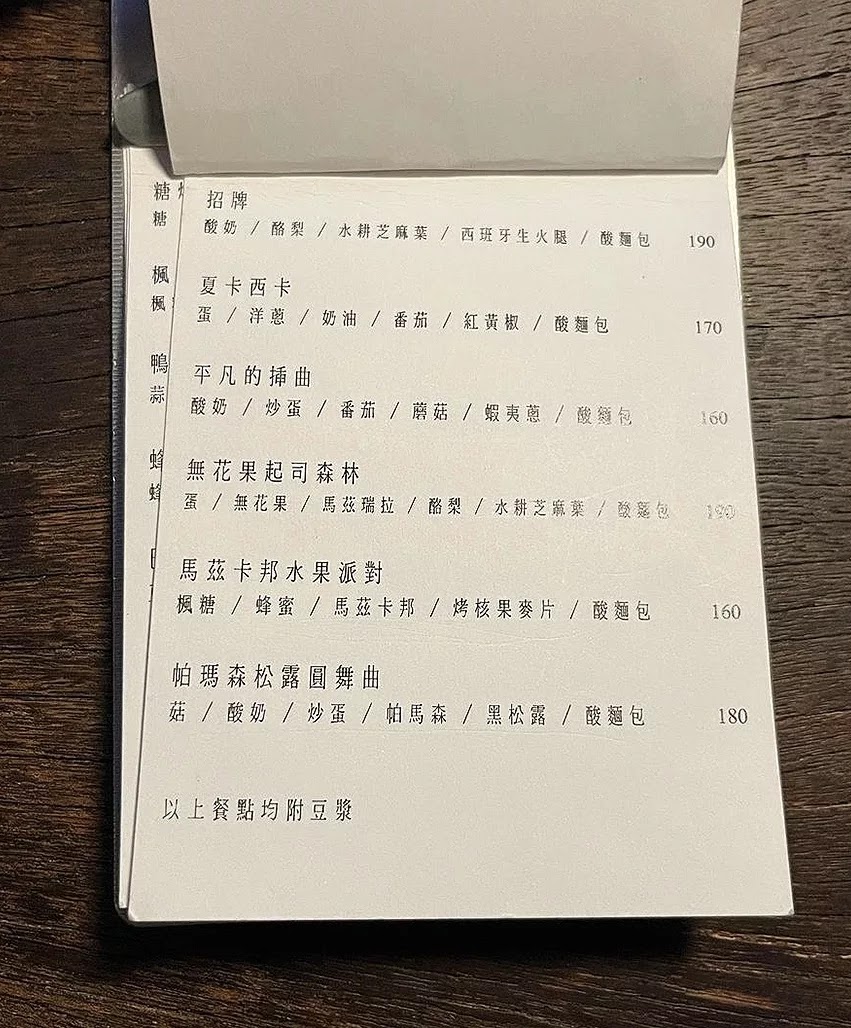 招牌
酸奶 / 酪梨 / 水耕芝麻葉 / 西班牙生火腿 / 酸麵包 190
夏卡西卡
蛋 / 洋蔥 / 奶油 / 番茄 / 紅黃椒 / 酸麵包 170
平凡的揷曲
酸奶 / 炒蛋 / 番茄 / 蘑菇 / 蝦夷蔥 / 酸麵包 160
無花果起司森林
蛋 / 無花果 / 馬茲瑞拉 / 酪梨 / 水耕芝麻葉 / 酸麵包 190
馬茲卡邦水果派對
楓糖 / 蜂蜜 / 馬茲卡邦 / 烤核果麥片 / 酸麵包 160
帕瑪森松露圓舞曲
菇 / 酸奶 / 炒蛋 / 帕馬森 / 黑松露 / 酸麵包 180
以上餐點均附豆漿
糖
糖
楓
楓
鴨
蒜
蜂
蜂